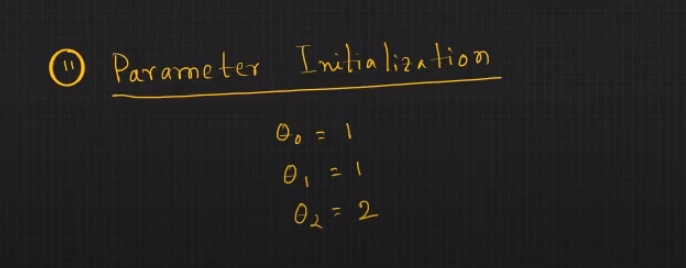 11 Parameter Initialization
θ₀ = 1
θ₁ = 1
θ₂ = 2